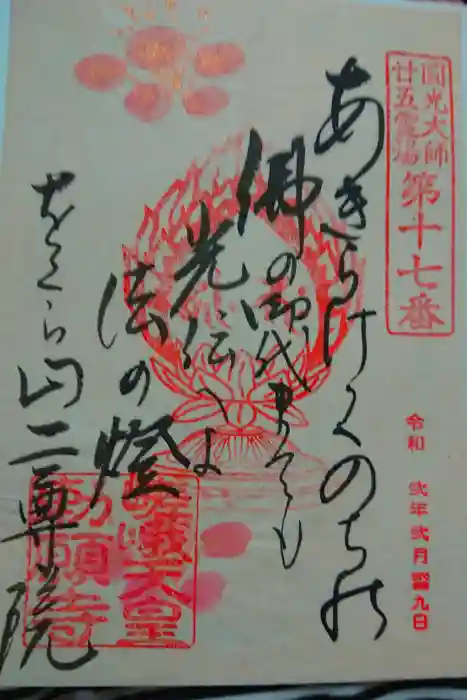 圓光大師
廿五霊場
第十七番
あきらけくのちの
佛の御代までも
光伝へよ
法の燈
をくら山二尊院
令和 弐年弐月 九日
嵯峨天皇
勅願寺